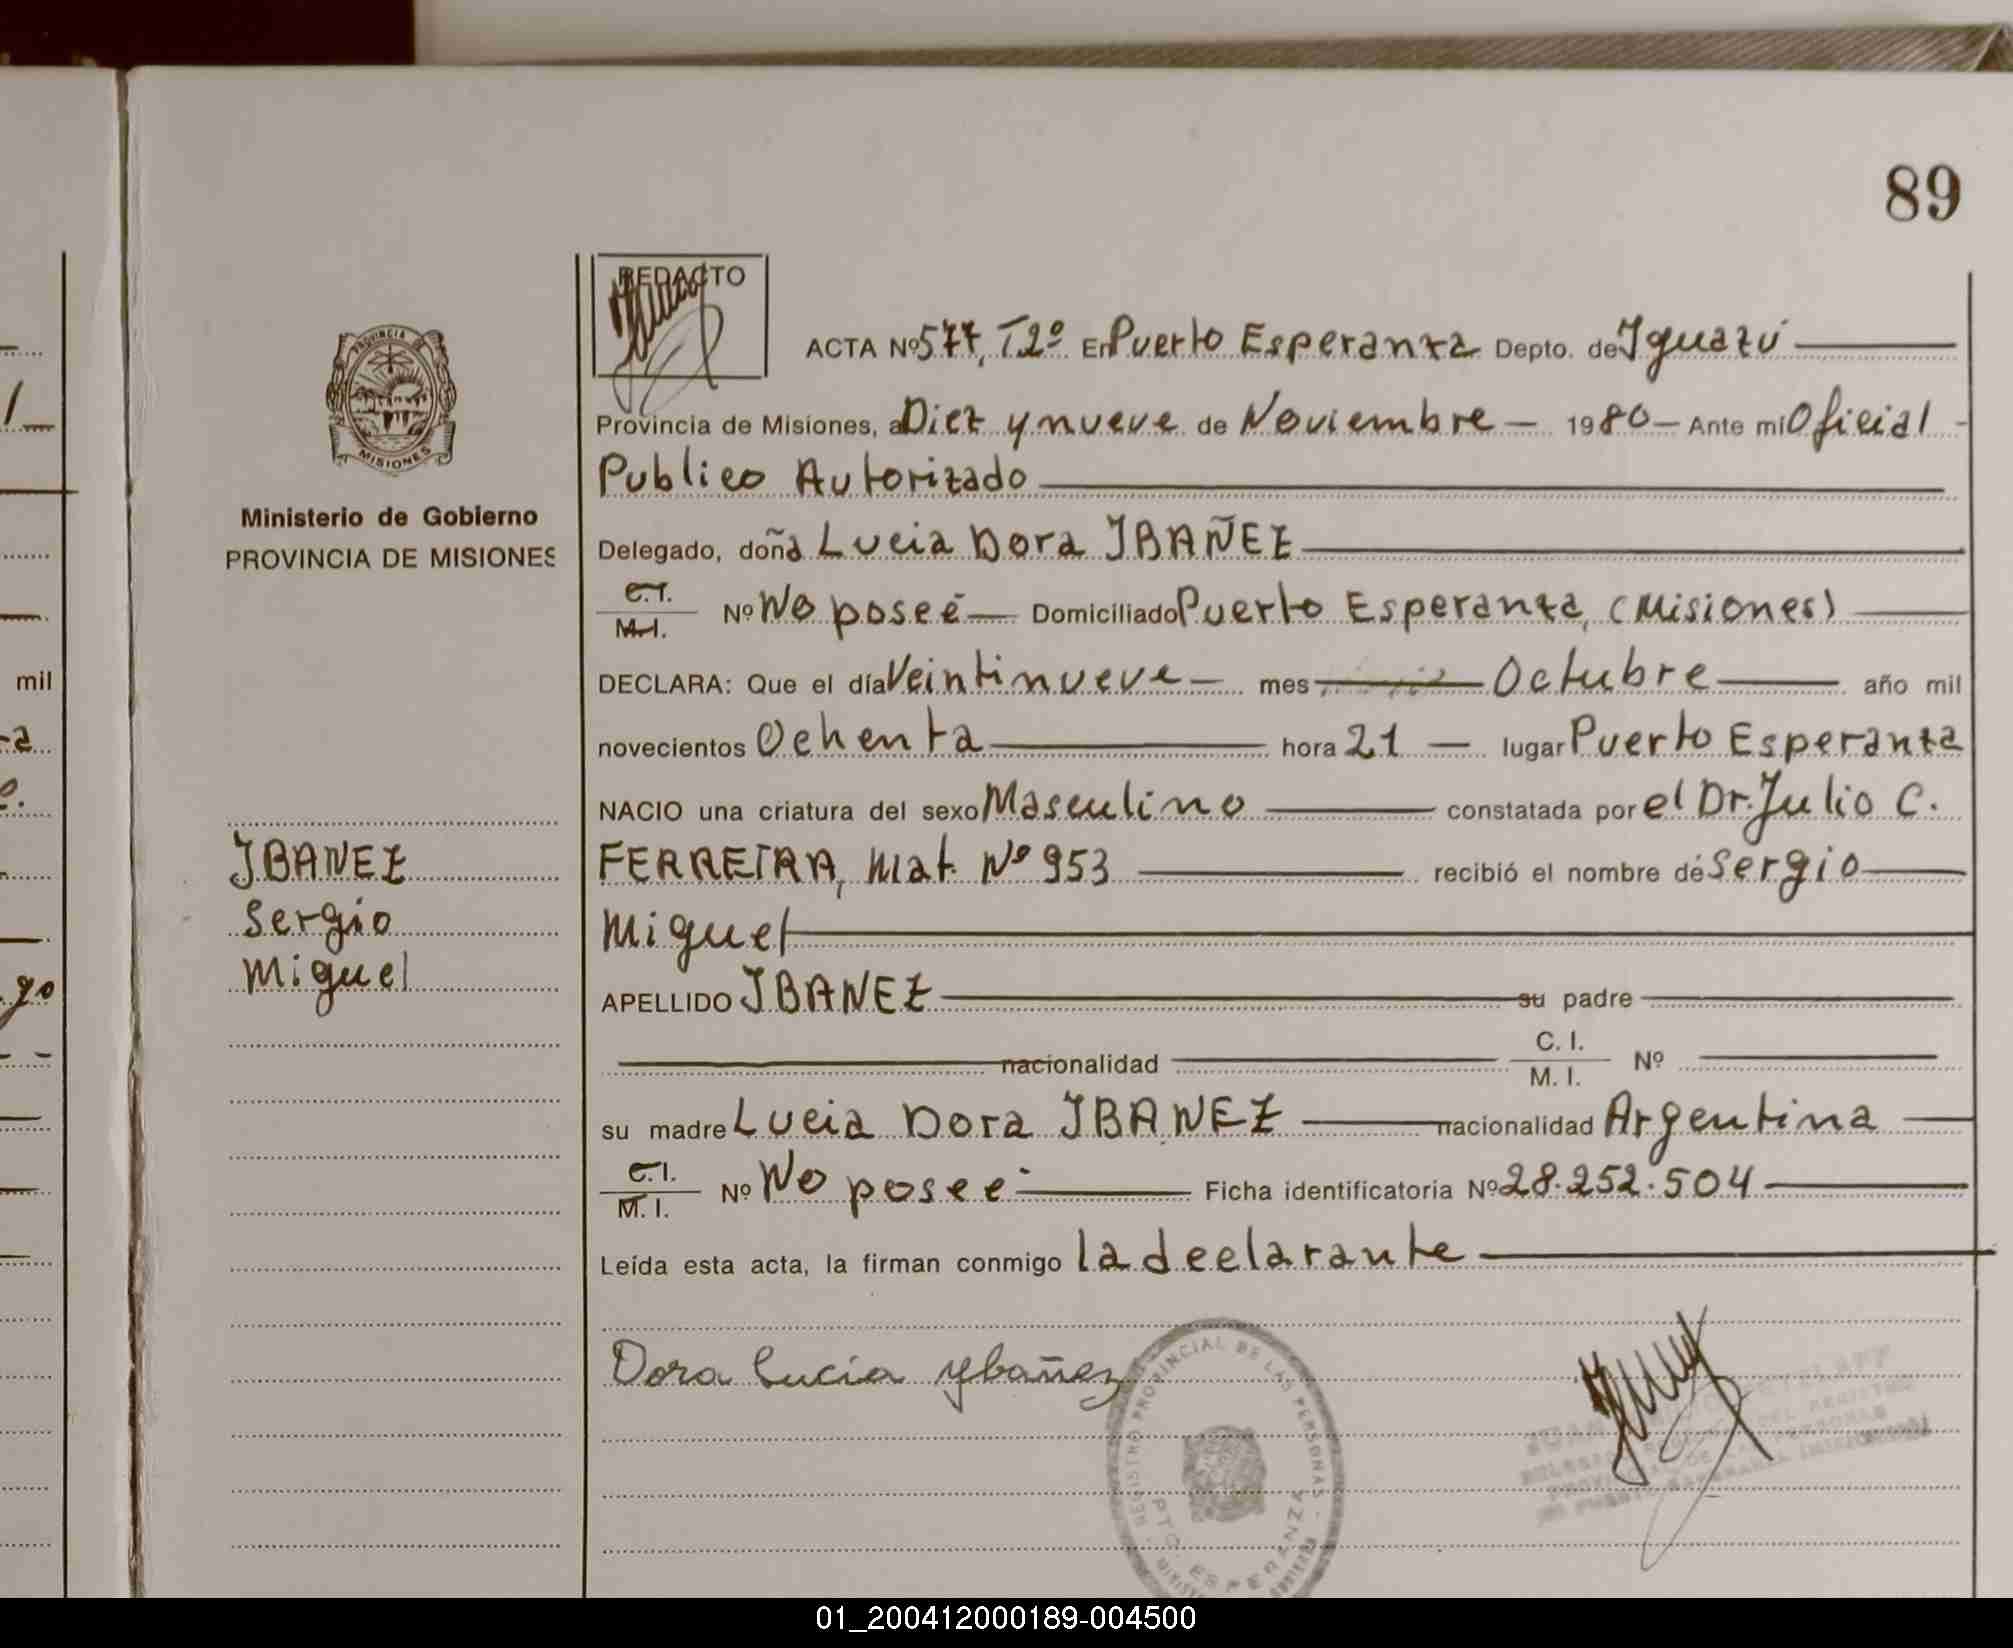 89
PROVINCIA
MISIONES
Ministerio de Gobierno
PROVINCIA DE MISIONES
IBANEZ
Sergio
Miguel
REDACTO
ACTA Nº 577, T2º En Puerto Esperanza Depto. de Iguazú
Provincia de Misiones, a Diez y nueve de Noviembre — 1980 — Ante mi Oficial
Publico Autorizado
Delegado, doña Lucia Dora IBAÑEZ
C.I. M.I. Nº No poseé — Domiciliado Puerto Esperanza, (Misiones)
DECLARA: Que el día Veintinueve — mes Octubre año mil
novecientos Ochenta hora 21 — lugar Puerto Esperanza
NACIO una criatura del sexo Masculino constatada por el Dr. Julio C.
FERREIRA, Mat. Nº 953 recibió el nombre de Sergio
Miguel
APELLIDO IBANEZ su padre
nacionalidad C. I. M. I. Nº
su madre Lucia Dora IBANEZ nacionalidad Argentina
C.I. M.I. Nº No posee Ficha identificatoria Nº 28.252.504
Leída esta acta, la firman conmigo la declarante
Dora Lucía Ybañez
REGISTRO PROVINCIAL DE LAS PERSONAS
PTO. ESPERANZA
mil
go
01_200412000189-004500